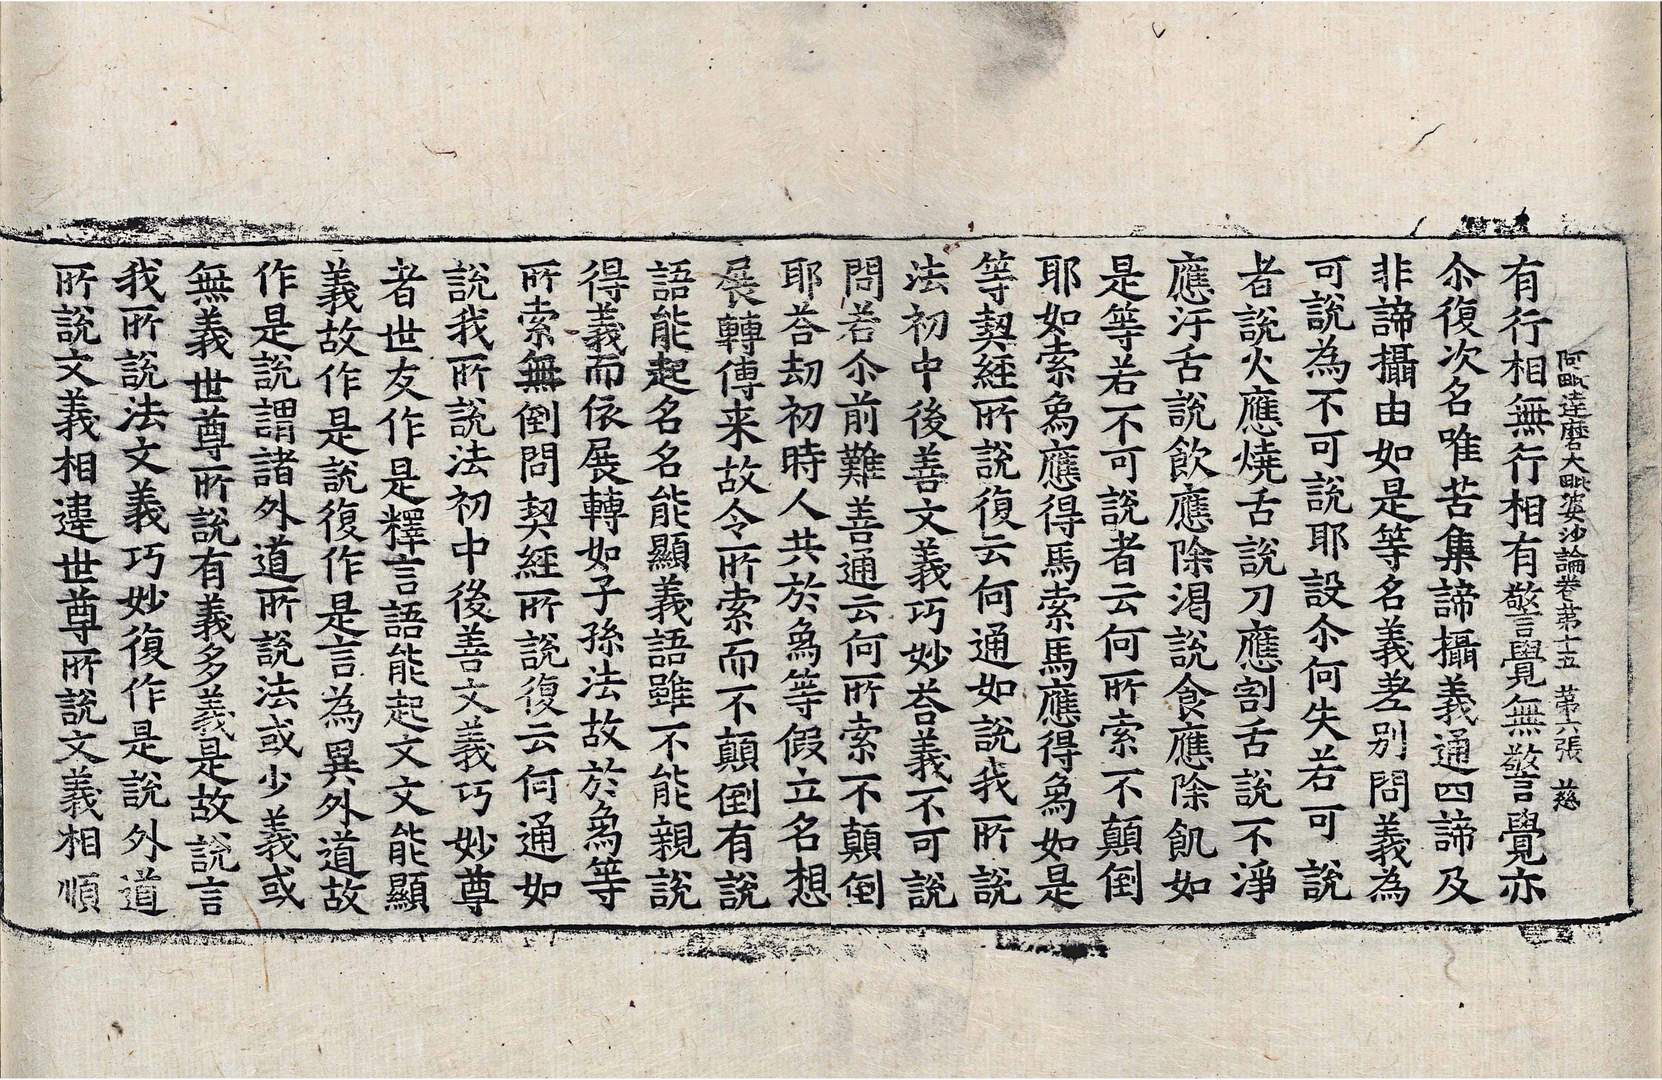 阿毗達磨大毗婆沙論卷第十五 第六張 慈
有行相無行相有警覺無警覺亦
尒復次名唯苦集諦攝義通四諦及
非諦攝由如是等名義差別問義為
可說為不可說耶設尒何失若可說
者說火應燒舌說刀應割舌說不淨
應汙舌說飲應除渴說食應除飢如
是等若不可說者云何所索不顛倒
耶如索象應得馬索馬應得象如是
等契經所說復云何通如說我所說
法初中後善文義巧妙荅義不可說
問若尒前難善通云何所索不顛倒
耶荅劫初時人共於象等假立名想
展轉傳来故令所索而不顛倒有說
語能起名名能顯義語雖不能親說
得義而依展轉如子孫法故於象等
所索無倒問契經所說復云何通如
說我所說法初中後善文義巧妙尊
者世友作是釋言語能起文文能顯
義故作是說復作是言為異外道故
作是說謂諸外道所說法或少義或
無義世尊所說有義多義是故說言
我所說法文義巧妙復作是說外道
所說文義相違世尊所說文義相順